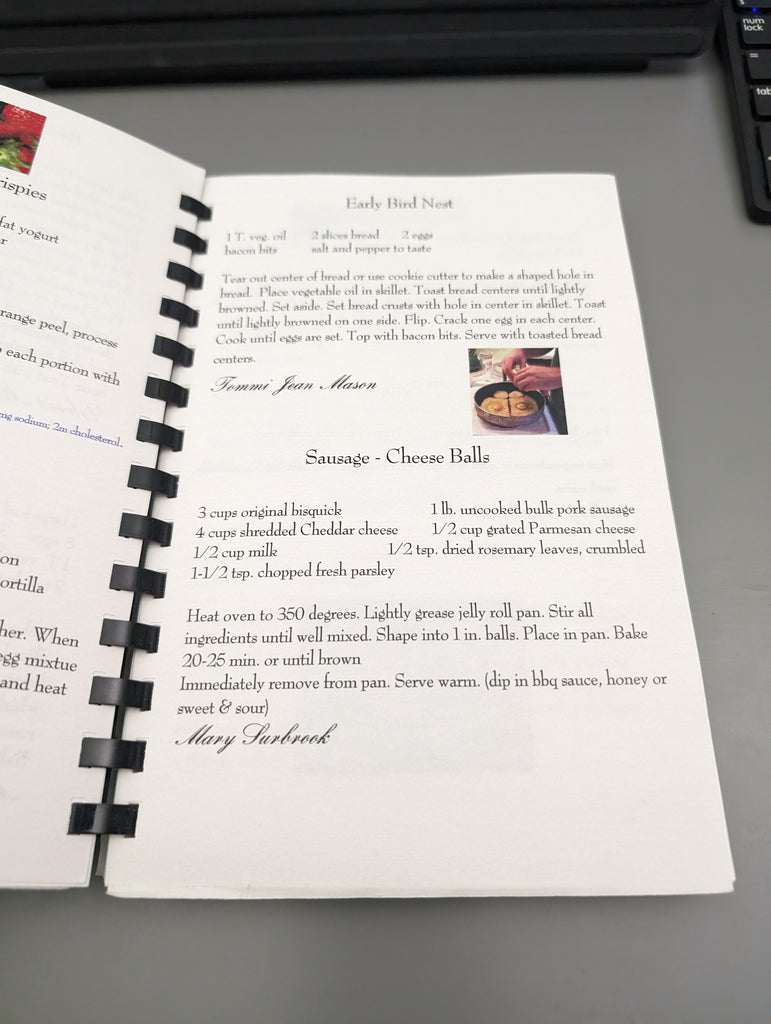 ispies
fat yogurt
r
range peel, process
each portion with
mg sodium; 2m cholesterol.
on
ortilla
her. When
egg mixtue
and heat
Early Bird Nest
1 T. veg. oil 2 slices bread 2 eggs
bacon bits salt and pepper to taste
Tear out center of bread or use cookie cutter to make a shaped hole in
bread. Place vegetable oil in skillet. Toast bread centers until lightly
browned. Set aside. Set bread crusts with hole in center in skillet. Toast
until lightly browned on one side. Flip. Crack one egg in each center.
Cook until eggs are set. Top with bacon bits. Serve with toasted bread
centers.
Tommi Jean Mason
Sausage - Cheese Balls
3 cups original bisquick 1 lb. uncooked bulk pork sausage
4 cups shredded Cheddar cheese 1/2 cup grated Parmesan cheese
1/2 cup milk 1/2 tsp. dried rosemary leaves, crumbled
1-1/2 tsp. chopped fresh parsley
Heat oven to 350 degrees. Lightly grease jelly roll pan. Stir all
ingredients until well mixed. Shape into 1 in. balls. Place in pan. Bake
20-25 min. or until brown
Immediately remove from pan. Serve warm. (dip in bbq sauce, honey or
sweet & sour)
Mary Surbrook
num
lock
=
tab